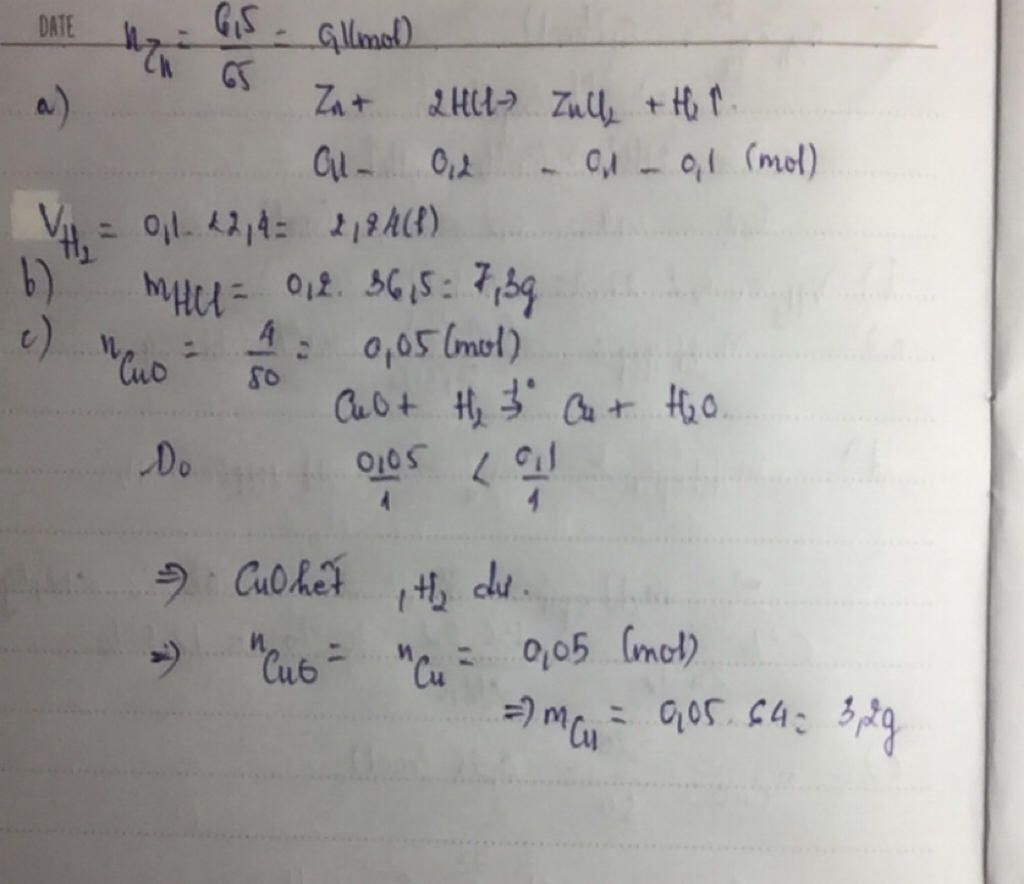 DATE
n_Zn = 6,5/65 = 0,1 (mol)
a) Zn + 2HCl → ZnCl₂ + H₂↑.
0,1 - 0,2 - 0,1 - 0,1 (mol)
V_H₂ = 0,1. 22,4 = 2,24 (l)
b) m_HCl = 0,2. 36,5 = 7,3g
c) n_CuO = 4/80 = 0,05 (mol)
CuO + H₂ →t° Cu + H₂O.
Do 0,05/1 < 0,1/1
⇒ CuO hết, H₂ dư.
⇒ n_CuO = n_Cu = 0,05 (mol)
⇒ m_Cu = 0,05. 64 = 3,2g